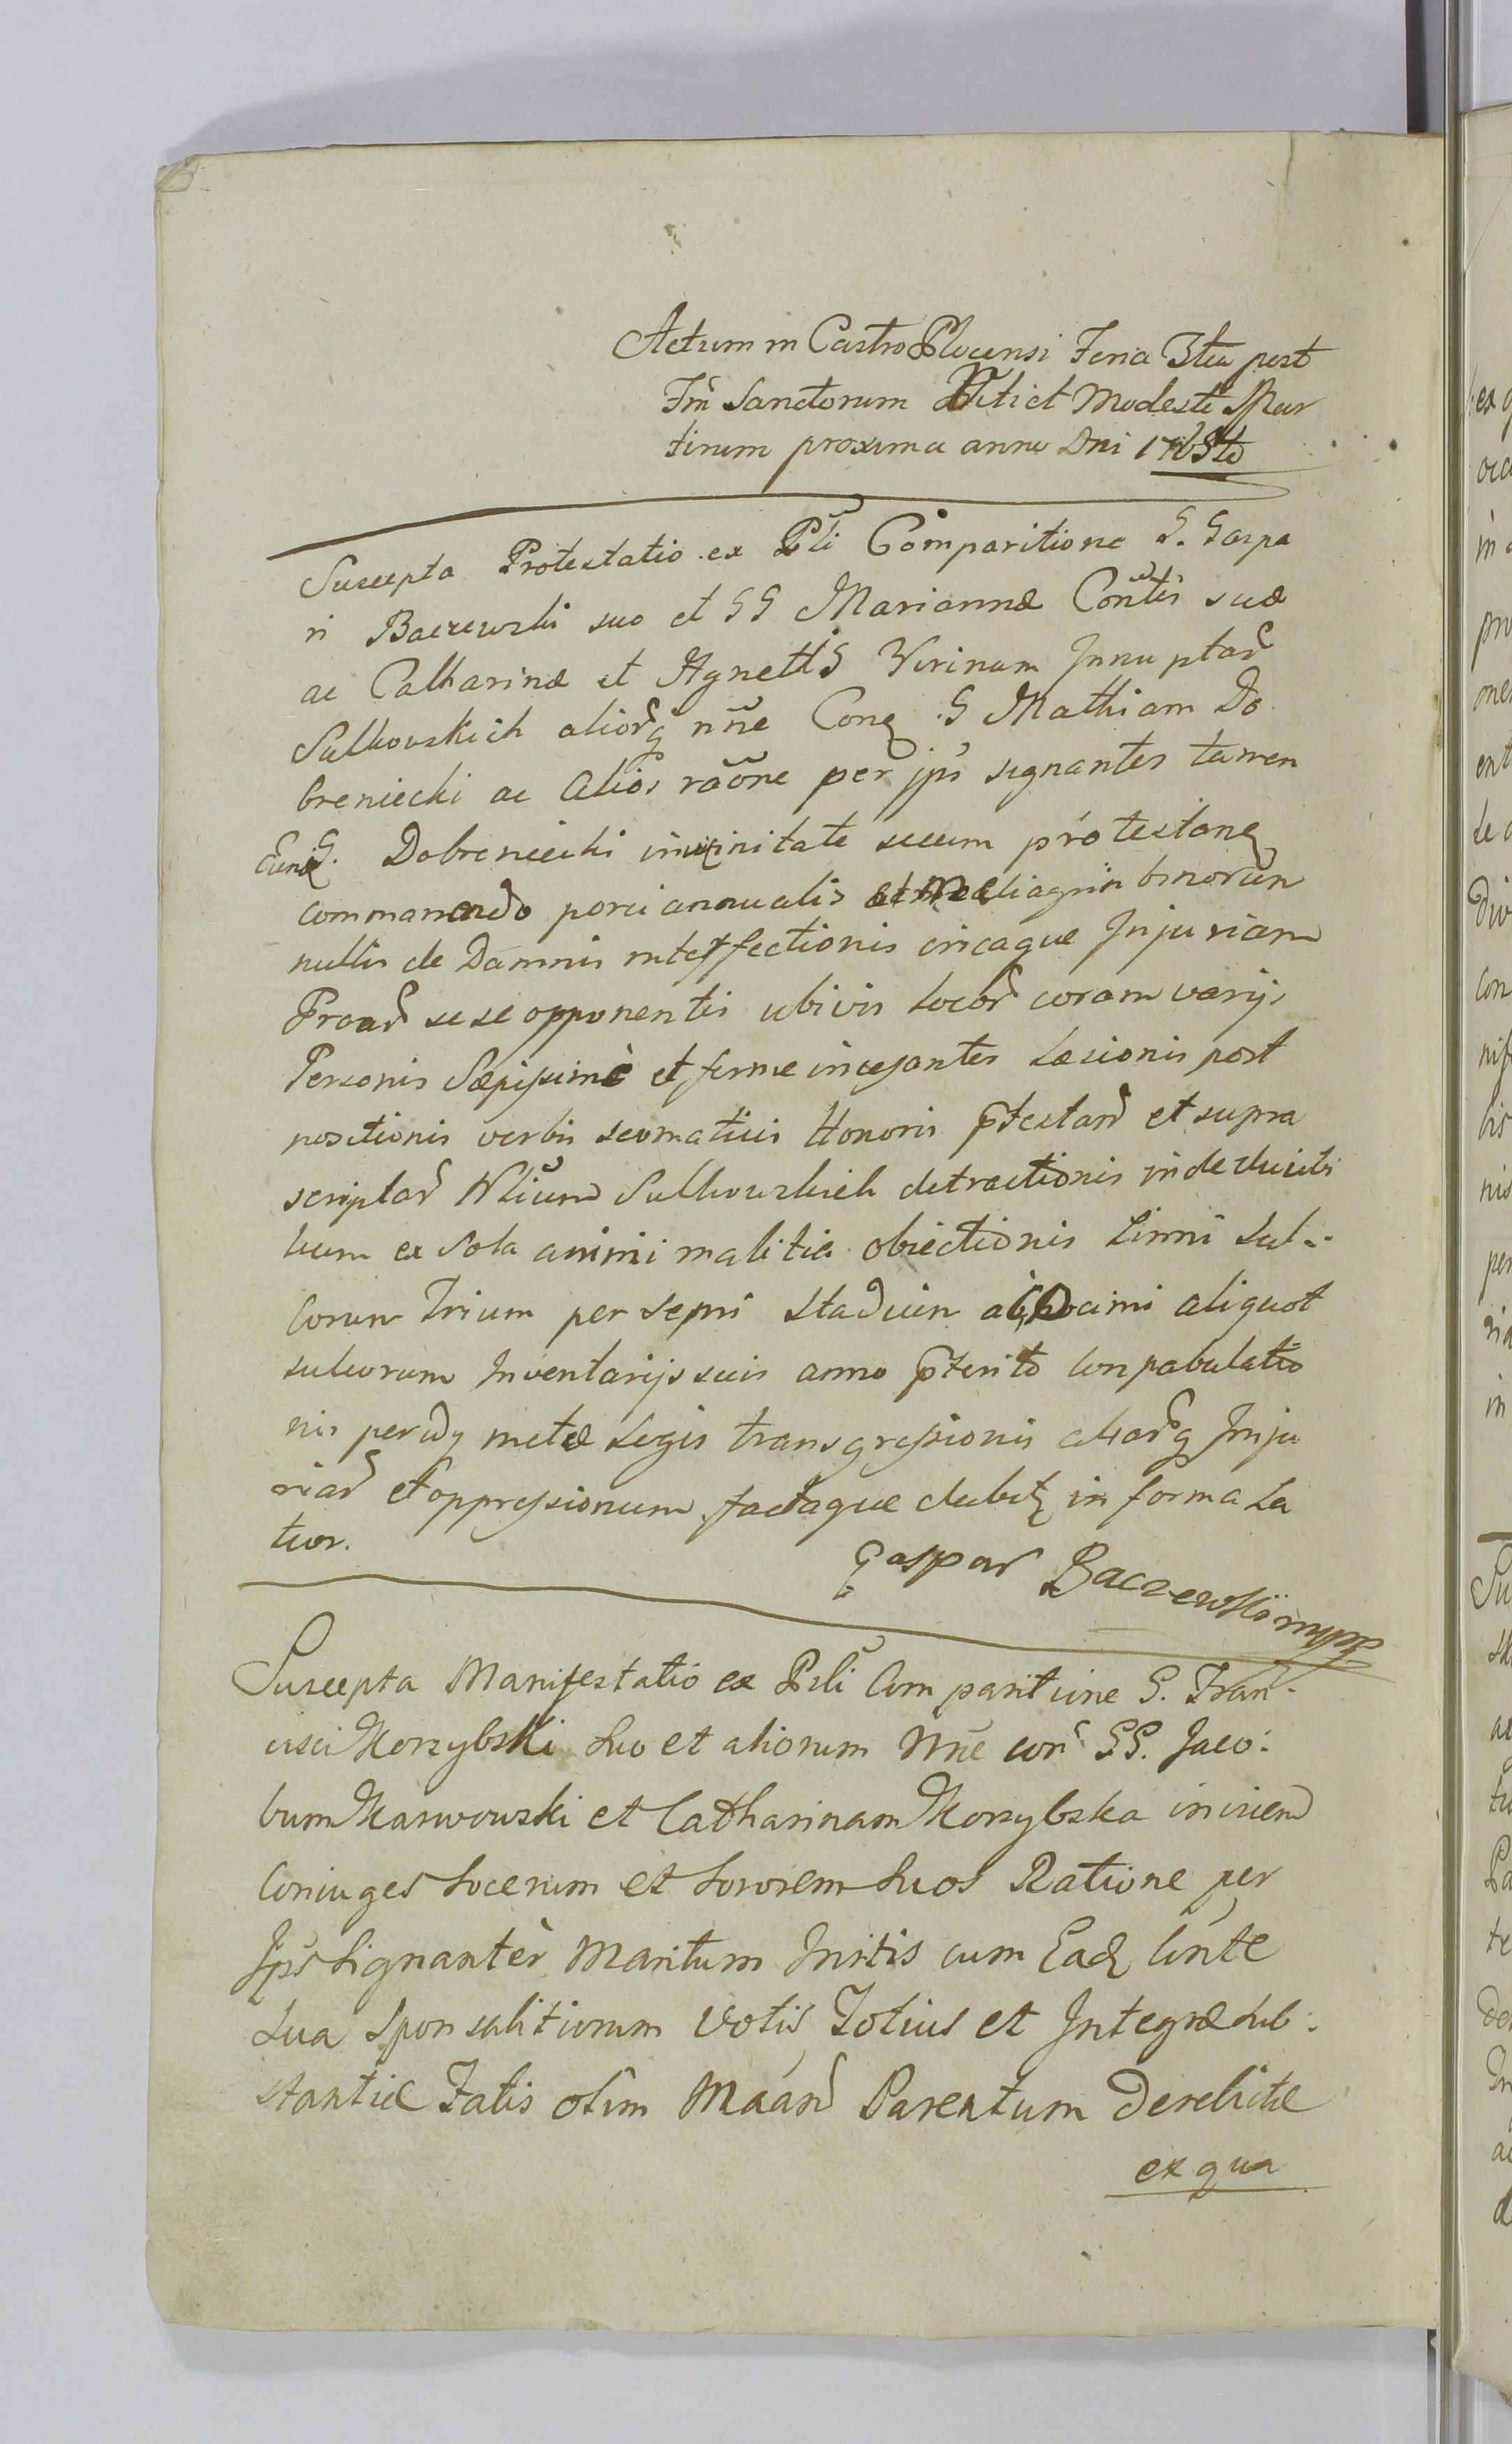 Actum in Castro Plocensi Feria 3tia post
Fm̃ Sanctorum Viti et Modesti Mar
tirum proxima anno Dni 1765to
Suscepta Protestatio ex Psli Comparitione G. Gaspa
ri Baczewski suo et GG Mariannæ Contis̃ suæ
ac Catharinæ et Agnettis Virinum Innuptar̃
Sulkowskich alior̃q nñe Conq G Mathiam Do
breniecki ac Alios rãõne per jps̃ signantes tamen
Eund G. Dobreniecki in vicinitate secum protestanq
commanendo porci annualis binorum
nullis de Damnis interfectionis circaque Injuriam
sese opponentis ubivis locor̃ coram varijs
Personis Sæpissimè et ferme incessantes Læsionis post
positionis verbis scomaticis Honoris p̃testar̃ et supra
scriptar̃ Sulkowskich detractionis indelucibi
lium ex sola animi malitia obiectionis Linni Sul-
corum Trium per Sepni Stadium ac aliquot
sulcorum Inventarijs suis anno p̃terito Conpabulatio
nis peridq metæ Legis transgressionis aliar̃q Inju
riar̃ et oppressionum factaque debitq in forma La
tior.
Gaspar Baczewski mpp
Suscepta Manifestatio ex Psli Comparitione G. Fran-
cisci Korzybski Suo et aliorum Nñe con̄ GG. Jaco:
bum Karwowski et Catharinam Korzybska invicem
Coniuges Socerum et Sororem Suos Ratione per
Jps̃ Signantèr Maritum Initis cum Eadq Cnte
Sua Sponsalitiorum Votis Totius et Integræ Sub:
stantiæ Fatis olim Maar̃ Parentum Derelictæ
ex qua